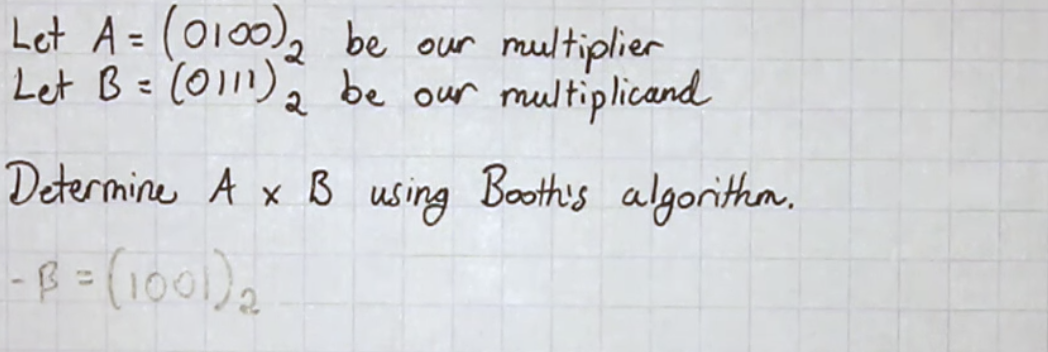 Let A = (0100)₂ be our multiplier
Let B = (0111)₂ be our multiplicand
Determine A x B using Booth's algorithm.
-B = (1001)₂